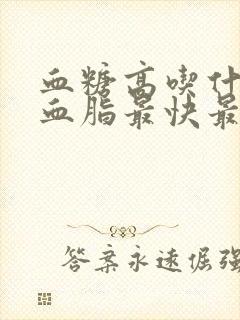 血糖高喫什
血脂最快最
答案永远倔强